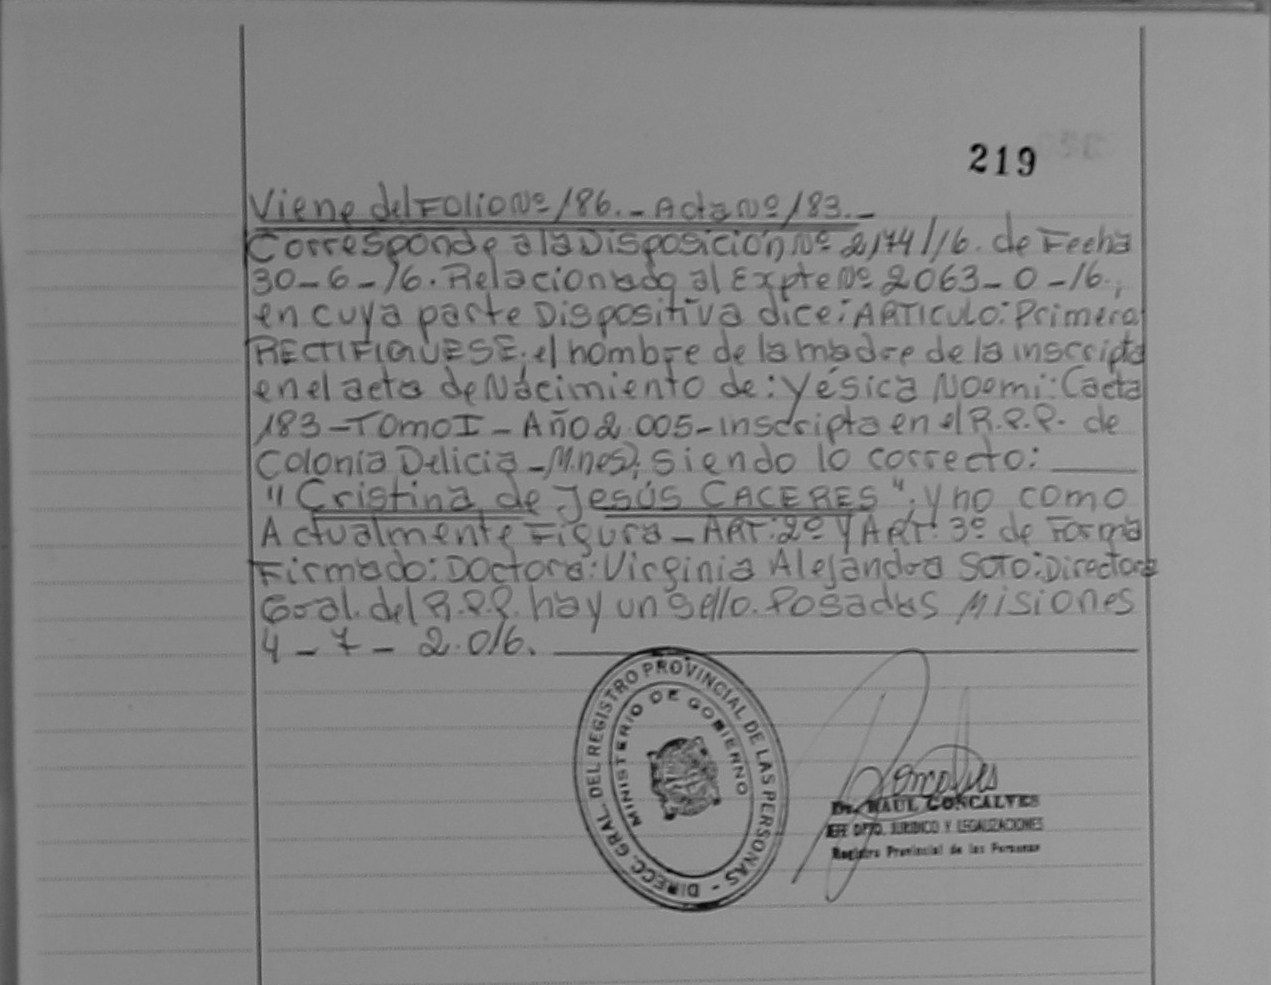 219
Viene del Folio Nº 186.- Acta Nº 183.-
Corresponde a la Disposición Nº 2174/16. de Fecha
30-6-16. Relacionado al Expte Nº 2063-O-16.,
en cuya parte Dispositiva dice: ARTICULO: Primero
RECTIFIQUESE. el nombre de la madre de la inscripta
en el acta de Nacimiento de: Yésica Noemi: (acta
183-TOMO I-Año 2.005-inscripta en el R.P.P. de
Colonia Delicia-Mnes); siendo lo correcto:
"Cristina de Jesús CACERES". y no como
Actualmente Figura-ART: 2º y ART: 3º de Forma
Firmado: Doctora: Virginia Alejandra SOTO: Directora
Gral. del R.P.P. hay un Sello. Posadas Misiones
4-7-2.016.
DIRECC. GRAL. DEL REGISTRO PROVINCIAL DE LAS PERSONAS -
MINISTERIO DE GOBIERNO
Dr. RAUL GONCALVES
JEFE DPTO. JURIDICO Y LEGALIZACIONES
Registro Provincial de las Personas